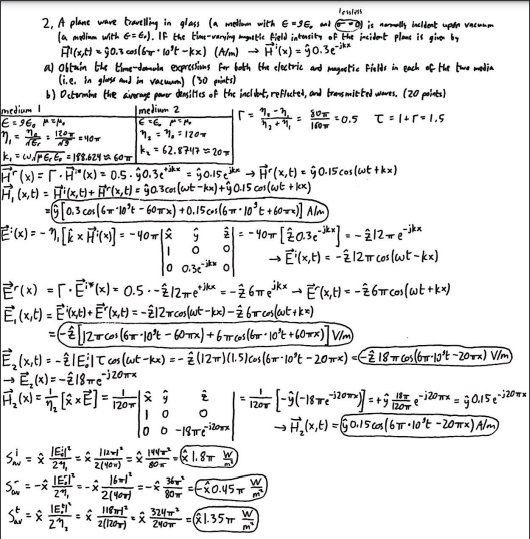 lossless
2. A plane wave travelling in glass (a medium with ϵ=9ϵ₀ and σ=0) is normally incident upon vacuum
(a medium with ϵ=ϵ₀). If the time-varying magnetic field intensity of the incident plane is given by
H⃗ⁱ(x,t) = ŷ0.3cos(6π·10⁹t-kx) (A/m) → H⃗ⁱ(x) = ŷ0.3e^-jkx
a) Obtain the time-domain expressions for both the electric and magnetic fields in each of the two media
(i.e. in glass and in vacuum) (30 points)
b) Determine the average power densities of the incident, reflected, and transmitted waves. (20 points)
medium 1
ϵ=9ϵ₀ μ=μ₀
η₁ = η₀/√ϵr = 120π/√9 = 40π
k₁ = ω√μϵrϵ₀ = 188.624 ≈ 60π
medium 2
ϵ=ϵ₀ μ=μ₀
η₂ = η₀ = 120π
k₂ = 62.8747 ≈ 20π
Γ = (η₂-η₁)/(η₂+η₁) = 80π/160π = 0.5 τ = 1+Γ = 1.5
H⃗ʳ(x) = Γ·H⃗ⁱ*(x) = 0.5·ŷ0.3e^+jkx = ŷ0.15e^jkx → H⃗ʳ(x,t) = ŷ0.15cos(ωt+kx)
H⃗₁(x,t) = H⃗ⁱ(x,t)+H⃗ʳ(x,t) = ŷ0.3cos(ωt-kx)+ŷ0.15cos(ωt+kx)
= ŷ[0.3cos(6π·10⁹t-60πx)+0.15cos(6π·10⁹t+60πx)] A/m
E⃗ⁱ(x) = -η₁[k̂×H⃗ⁱ(x)] = -40π |x̂ ŷ ẑ; 1 0 0; 0 0.3e^-jkx 0| = -40π[ẑ0.3e^-jkx] = -ẑ12πe^-jkx
→ E⃗ⁱ(x,t) = -ẑ12πcos(ωt-kx)
E⃗ʳ(x) = Γ·E⃗ⁱ*(x) = 0.5·-ẑ12πe^+jkx = -ẑ6πe^jkx → E⃗ʳ(x,t) = -ẑ6πcos(ωt+kx)
E⃗₁(x,t) = E⃗ⁱ(x,t)+E⃗ʳ(x,t) = -ẑ12πcos(ωt-kx)-ẑ6πcos(ωt+kx)
= -ẑ[12πcos(6π·10⁹t-60πx)+6πcos(6π·10⁹t+60πx)] V/m
E⃗₂(x,t) = -ẑ|E₀ⁱ|τcos(ωt-kx) = -ẑ(12π)(1.5)cos(6π·10⁹t-20πx) = -ẑ18πcos(6π·10⁹t-20πx) V/m
→ E⃗₂(x) = -ẑ18πe^-j20πx
H⃗₂(x) = 1/η₂[x̂×E⃗] = 1/120π |x̂ ŷ ẑ; 1 0 0; 0 0 -18πe^-j20πx| = 1/120π[-ŷ(-18πe^-j20πx)] = +ŷ 18π/120π e^-j20πx = ŷ0.15e^-j20πx
→ H⃗₂(x,t) = ŷ0.15cos(6π·10⁹t-20πx) A/m
Sⁱav = x̂ |E₀ⁱ|²/2η₁ = x̂ |12π|²/2(40π) = x̂ 144π²/80π = x̂1.8π W/m²
Sʳav = -x̂ |E₀ʳ|²/2η₁ = -x̂ |6π|²/2(40π) = -x̂ 36π²/80π = -x̂0.45π W/m²
Sᵗav = x̂ |E₀ᵗ|²/2η₂ = x̂ |18π|²/2(120π) = x̂ 324π²/240π = x̂1.35π W/m²